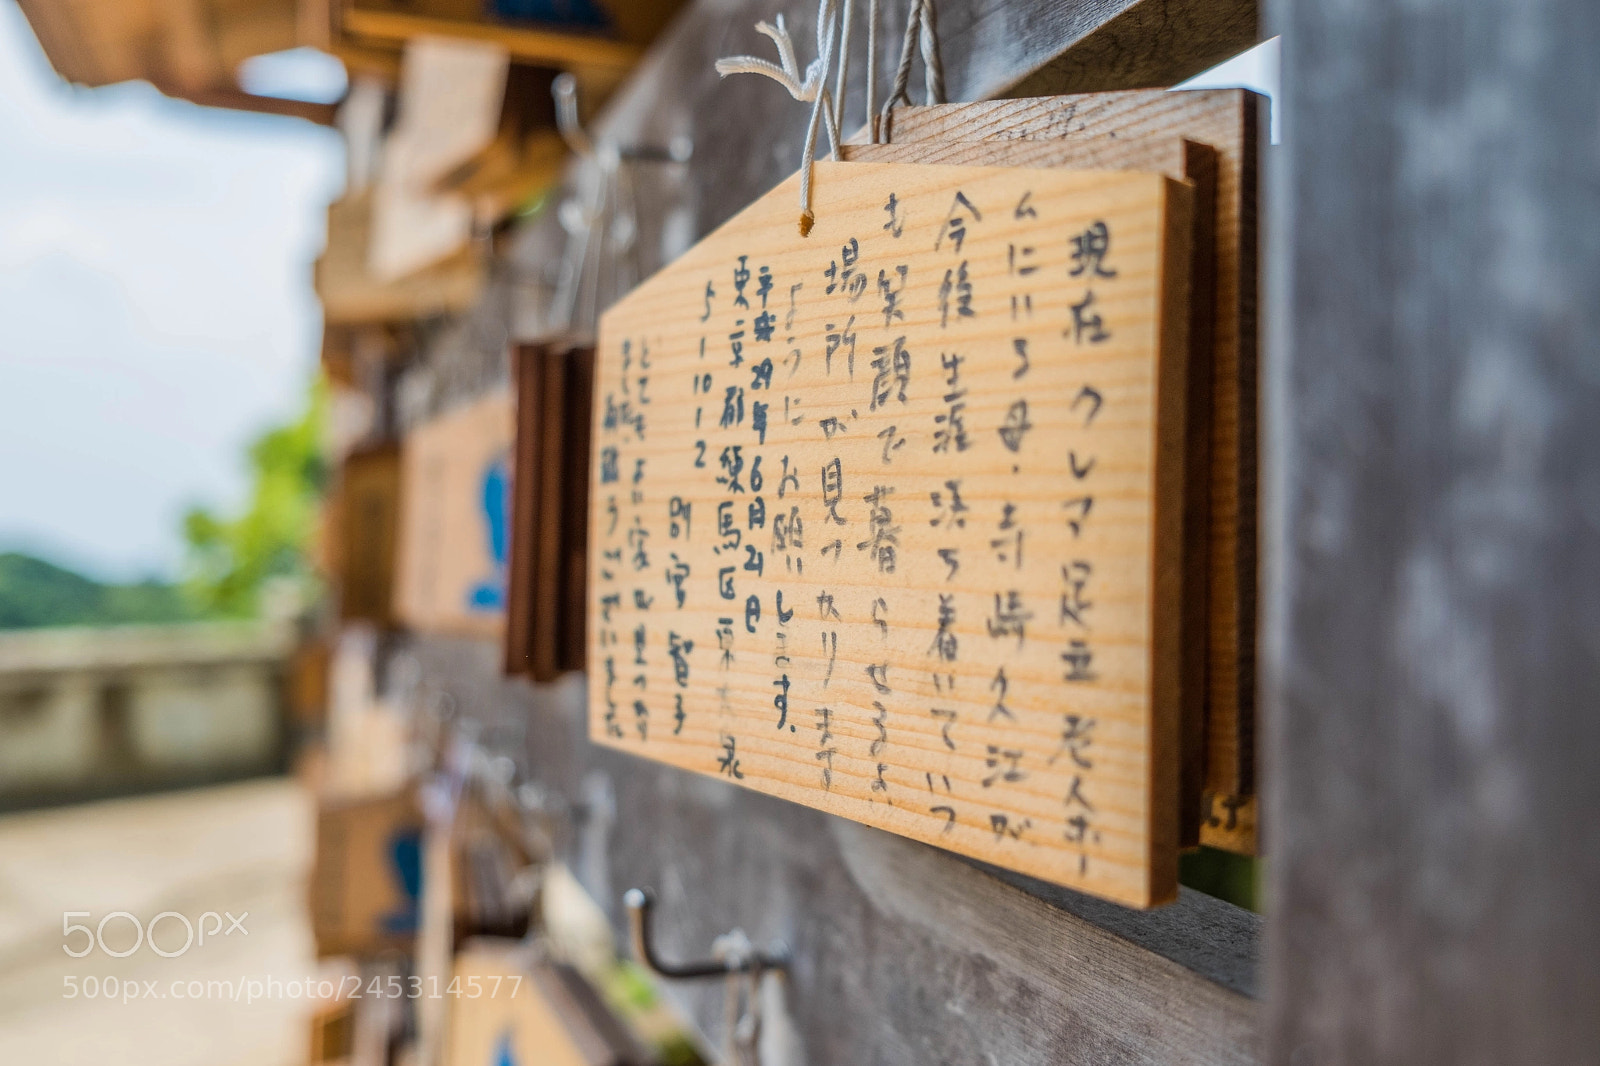 現在 クレマ足立 老人ホ
ムにいる母・寺崎久江が
今後 生涯 落ち着いて いつ
も笑顔で暮らせるよ
場所が見つかります
ようにお願いします.
平成29年6月21日
東京都練馬区東大泉
5 1 10 1 2
智子
とても よい
ました.
ございました
500px
500px.com/photo/245314577